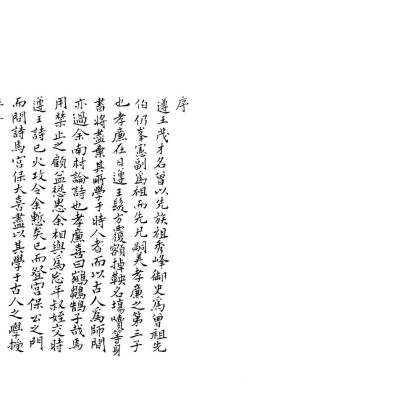 序
遵王茂才名曾以先族祖秀峰御史爲曾祖先
伯仍峯憲副爲祖而先兄嗣美孝廉之第三子
也孝廉在日遵王髮方覆額掉鞅名場嘖等身
書將盡棄其所學于時人者而以古人爲師間
亦過余南村論詩也孝廉喜曰鷄鸛鵠子哉馬
用禁止之顧益慫恿余相與爲忘年叔姪交時
遵王詩已火攻令余慙矣已而登宮保公之門
而問詩焉宮保大喜盡以其學于古人之學授